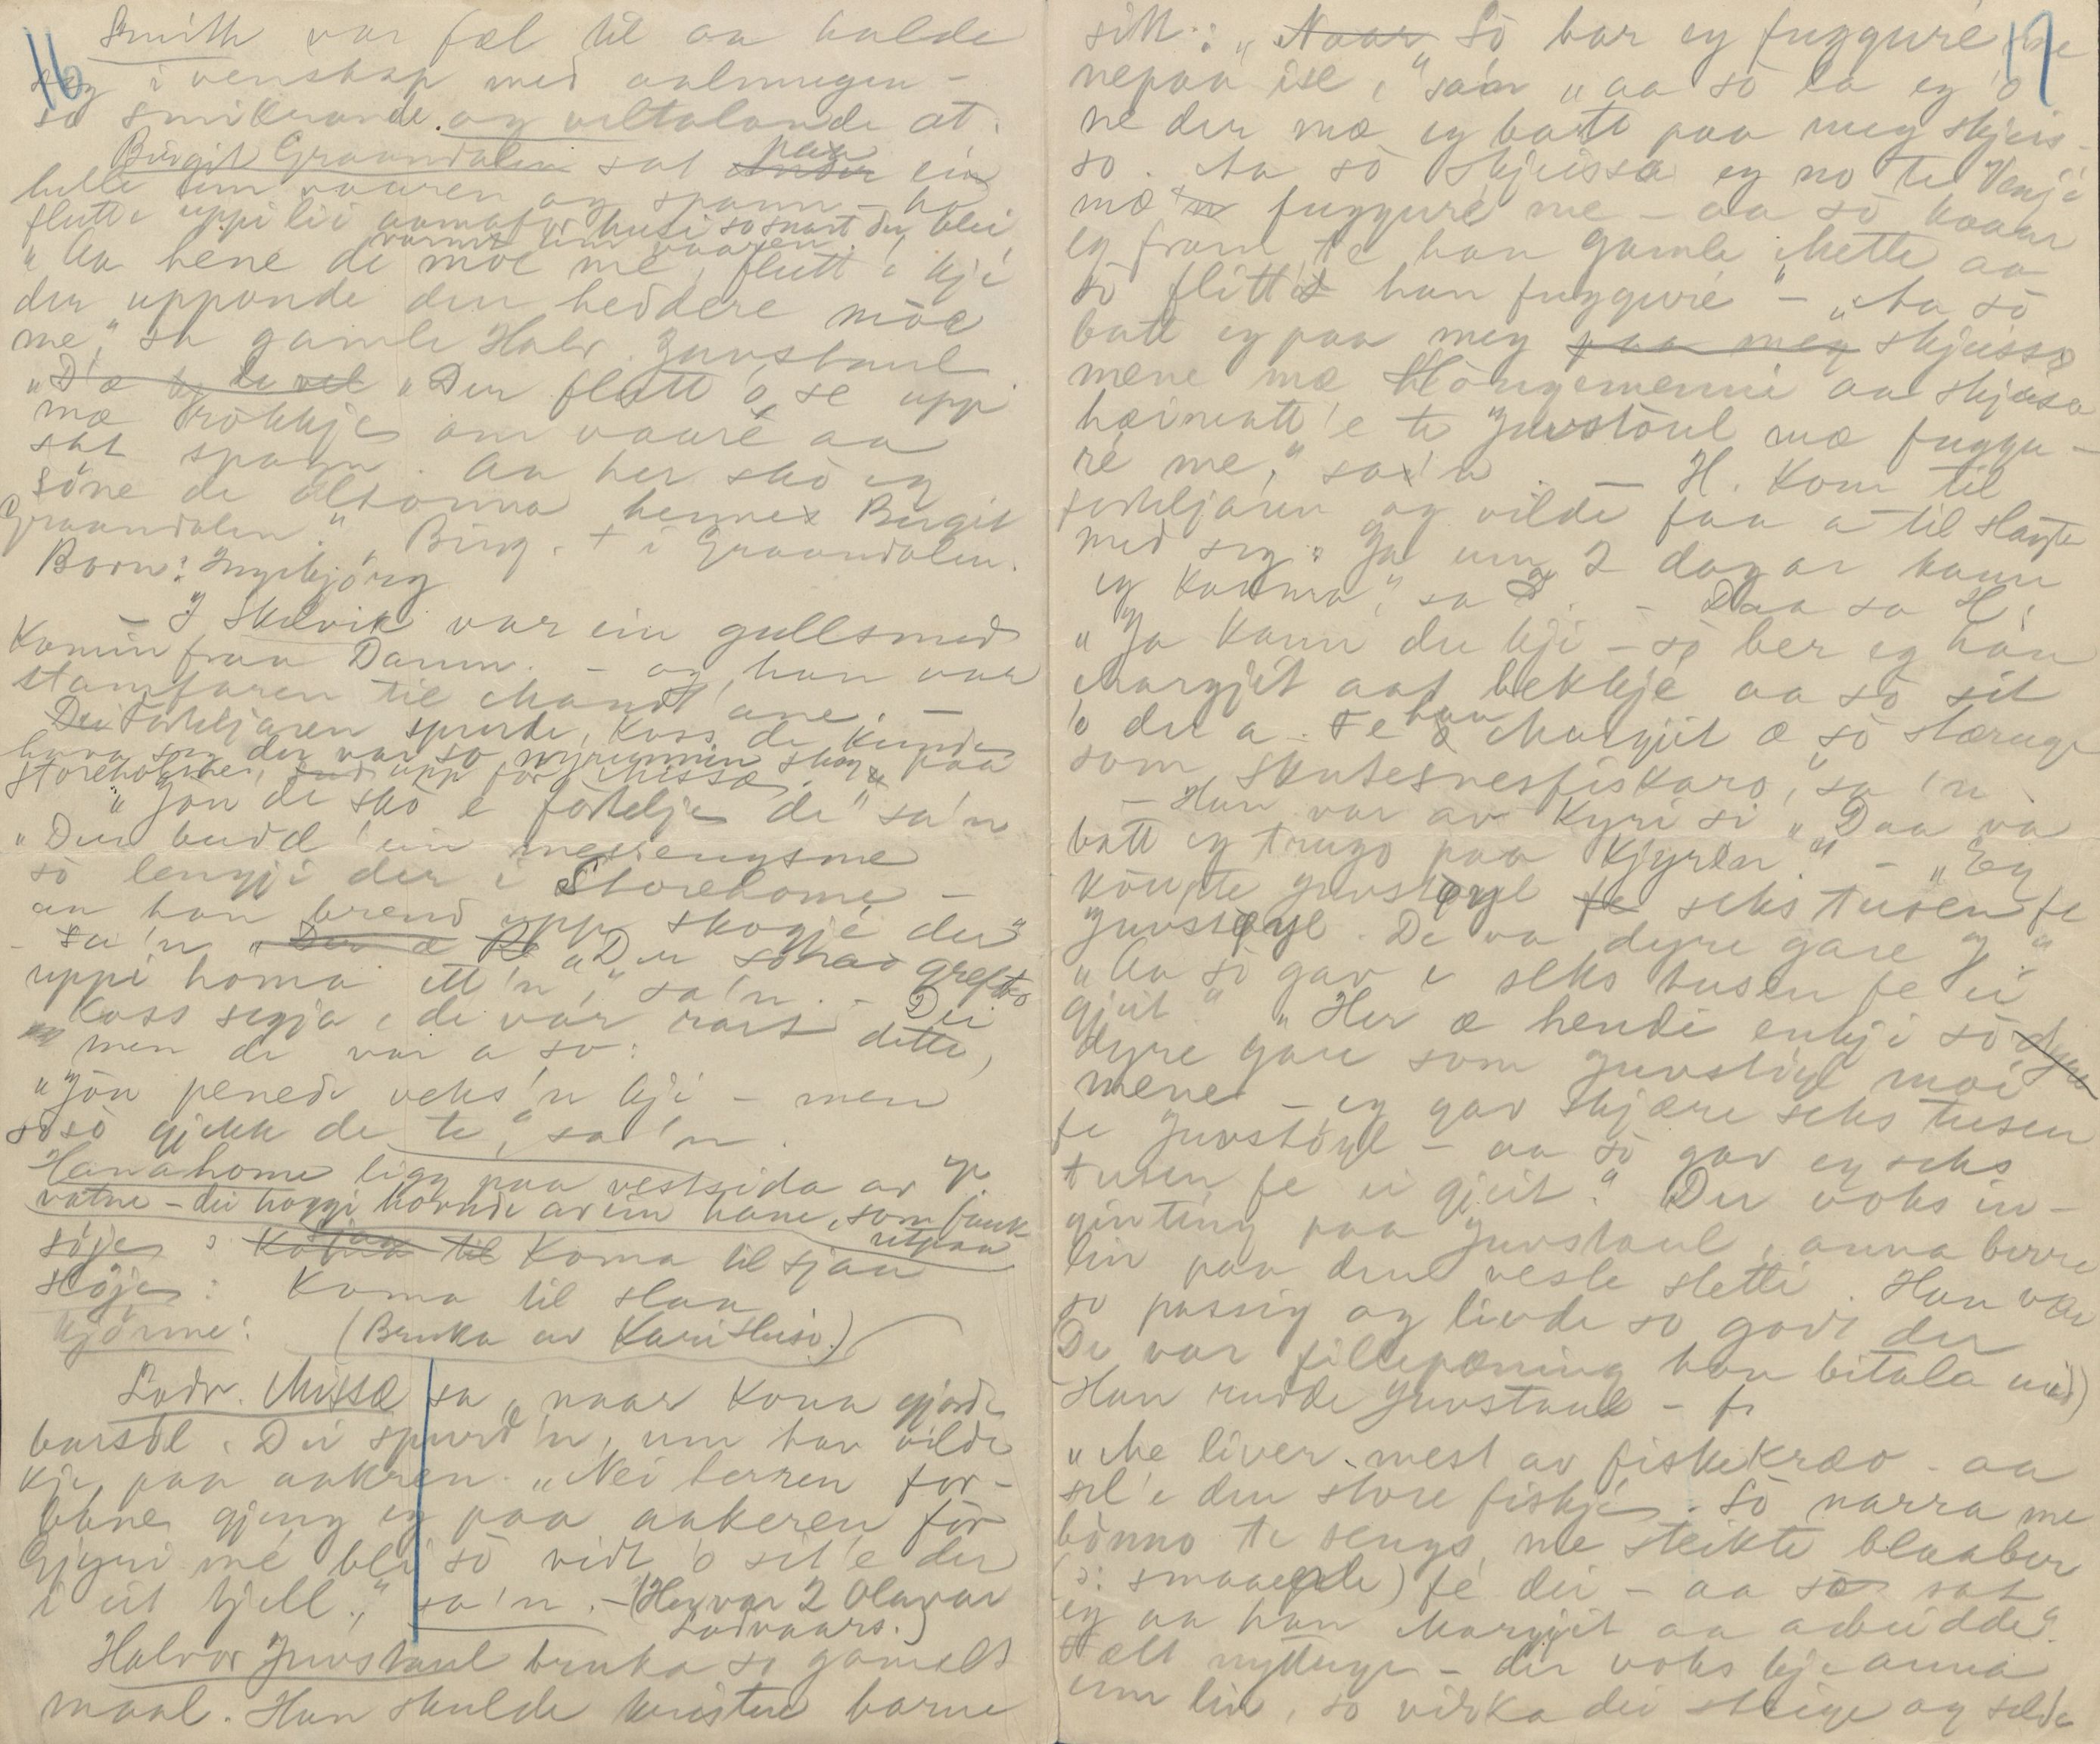 16
Smith var fæl til aa halde
seg i venskap med aalmugen –
so smikrande og veltalande at.
Birgit Graandalen sat paa ein
helle um vaaren og spann – ho
flutte uppi lii aamafor husi so snart der blei
varmt um vaaren.
"Aa hene de moe me, flutt'e kji
der upponde den heddere möe
me," sa gamle Halv. Juvstaul
"D'æ de vel "Der flutt'o se upp
mæ rokkje om vaaré aa
sat spann. Aa her sko eg
söne de altonna hennes Birgit
Graandalen." Birg. + i Graandalen.
Born: Ingebjörg
– I Skilvik var ein gullsmed
Komin fraa Danm. – og han var
stamfaren til Mandt'ane. –
Dei spurde, Koss de Kunde
hava seg der var so nyrunnin skog paa
Storeholmen, upp for Missæ.
"Jön de sko e förtelje de" sa'n
"Der budd'ein
so lengji der i Storehome –
an han brend upp skogjé der"
– sa'n "Der so grefto
uppi homa ett'n," sa'n. – Dei
Koss segja, de var rart dette,
men de var a so:
"Jön penede veks'n kji – men
so so gjekk de te," sa'n.
Hanahome ligg paa vestsida av
vatne – dei hoggi hovude av ein hane, som fauk
utpaa
söje: Koma til sjaa
slöje: Koma til slaa
kjörme: (Bruka av Kari Husi.)
Lodv. Missæ sa, naar Kona gjorde
barsöl. Dei spurd'n, um han vilde
kje paa aakren. "Nei herren for-
bane gjeng eg paa aakeren för
Gjyri me bli so vidt 'o sit'e der
i eit hjell," sa'n. – (Her var 2 Olavar
Lodvaars.)
Halvor Juvstaul bruka so gamalt
maal. Han skulde kristne borne
17
sitt: "Naar "So bar eg fuggure me
nepaa ise," sa'n "aa so la eg 'o
ne der mæ eg batt paa meg skjeis-
so. Aa so skjeissa eg no te Venje
mæ fuggure me – aa so kaam
eg fram te han gamle Mette aa
so flitta han fuggure" – "Aa so
batt eg paa meg paa meg skjeisso
mene mæ aa skjeisa
heimatt'e te Juvstöul mæ fuggu-
re me," sa'n. – H. Kom til
og vilde faa a til Hægte
med seg: "Ja um 2 dagar kann
eg komma," sa – Daa sa H:
"Ja kann du kji – so ber eg han
Margjit aat bekkje aa so sit
'o der a. Fe han Margjit æ so stærug
som Skutesnesfiskaro," sa'n.
– Han var av Kyri si "Daa va
batt eg trugo paa Kjyren." – "Eg
köupte Juvstöyl fe seks tusen fe
Juvstöyl. De va dyre gare
"Aa so gav e seks tusen fe ei
gjeit" "Her æ hendi enkji so dyre
dyre gare som Juvstöyl moé
mene – eg gav skjære seks tusen
fe Juvstöyl – aa so gav eg seks
tusen fe ei gjeit." Der voks in-
ginting paa Juvstaul, anna berre
lin paa den vesle sletti. Han var
so passig og livde so godt der
De var fillepæning han bitala med)
Han rudde Juvstaul –
"Me liver mest av fiskekræo – aa
sel'e den store fiskje. So narra me
bonno te sengs, me steikte blaaber
(o: smaaepde) fe dei – aa so sat
eg aa han Margjit aa arbeidde"
Sælt nyttuge – der voks kje anna
enn lin, so virka dei streige og selde